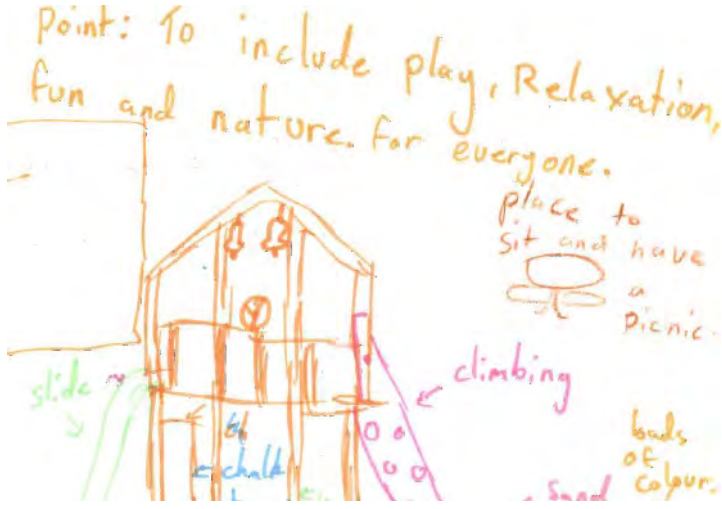 Point: To include play, Relaxation,
fun and nature. For everyone.
place to
sit and have
a
picnic.
slide
climbing
chalk
loads
of
colour.
Sand